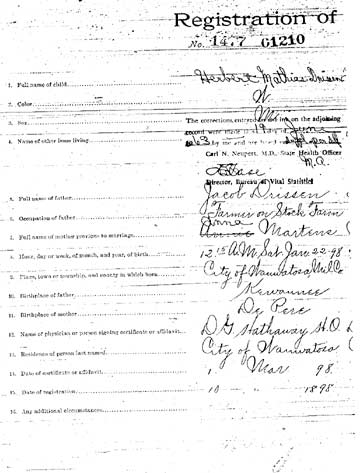 Registration of
No. 147 G1210
1. Full name of child Herbert Mathias Drissen
2. Color W.
3. Sex M
The corrections entered in red ink on the adjoining
4. Name of other issue living
record were made on 19 June
1963 by me and my hand
Carl N. Neupert, M.D., State Health Officer
M.Q.
Director, Bureau of Vital Statistics
5. Full name of father Jacob Drissen
6. Occupation of father Farmer on Stock Farm
Anna
7. Full name of mother previous to marriage Annie Martens
8. Hour, day or week, of month, and year, of birth 12 15 A.M. Sat Jan 22-98
9. Place, town or township, and county in which born City of Wauwatosa Mil Co
10. Birthplace of father Kewaunee
11. Birthplace of mother De Pere
12. Name of physician or person signing certificate or affidavit D G Hathaway H.O.
13. Residence of person last named City of Wauwatosa
14. Date of certificate or affidavit 1 Mar 98
15. Date of registration 10 " 1898
16. Any additional circumstances